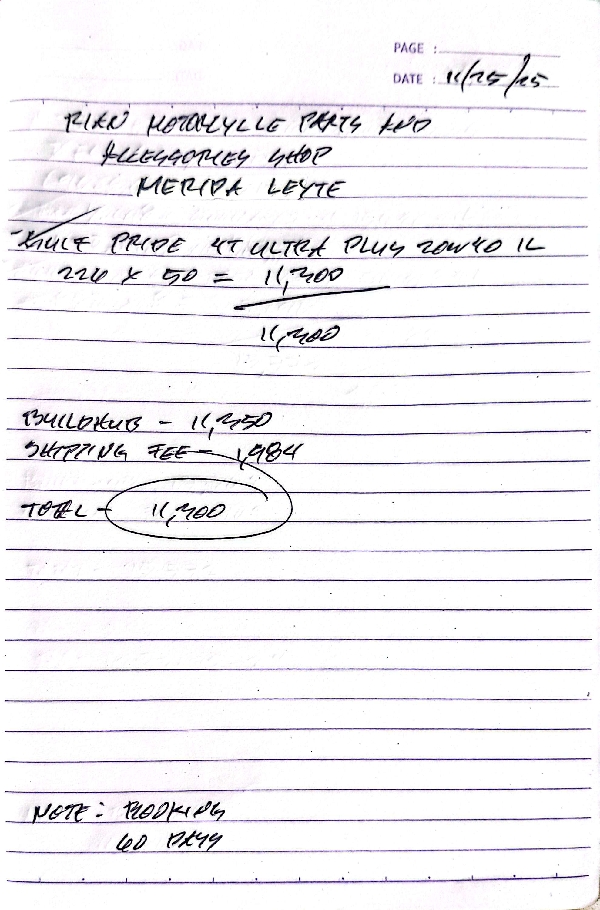 PAGE :
DATE : 11/25/25
RIAN MOTORCYCLE PARTS AND
ACCESSORIES SHOP
MERIDA LEYTE
PRIDE 4T ULTRA PLUS 20W40 1L
226 X 50 = 11,300
11,300
BUILDHUB - 11,350
SHIPPING FEE - 1,984
TOTAL - 11,300
NOTE: BOOKING
60 DAYS